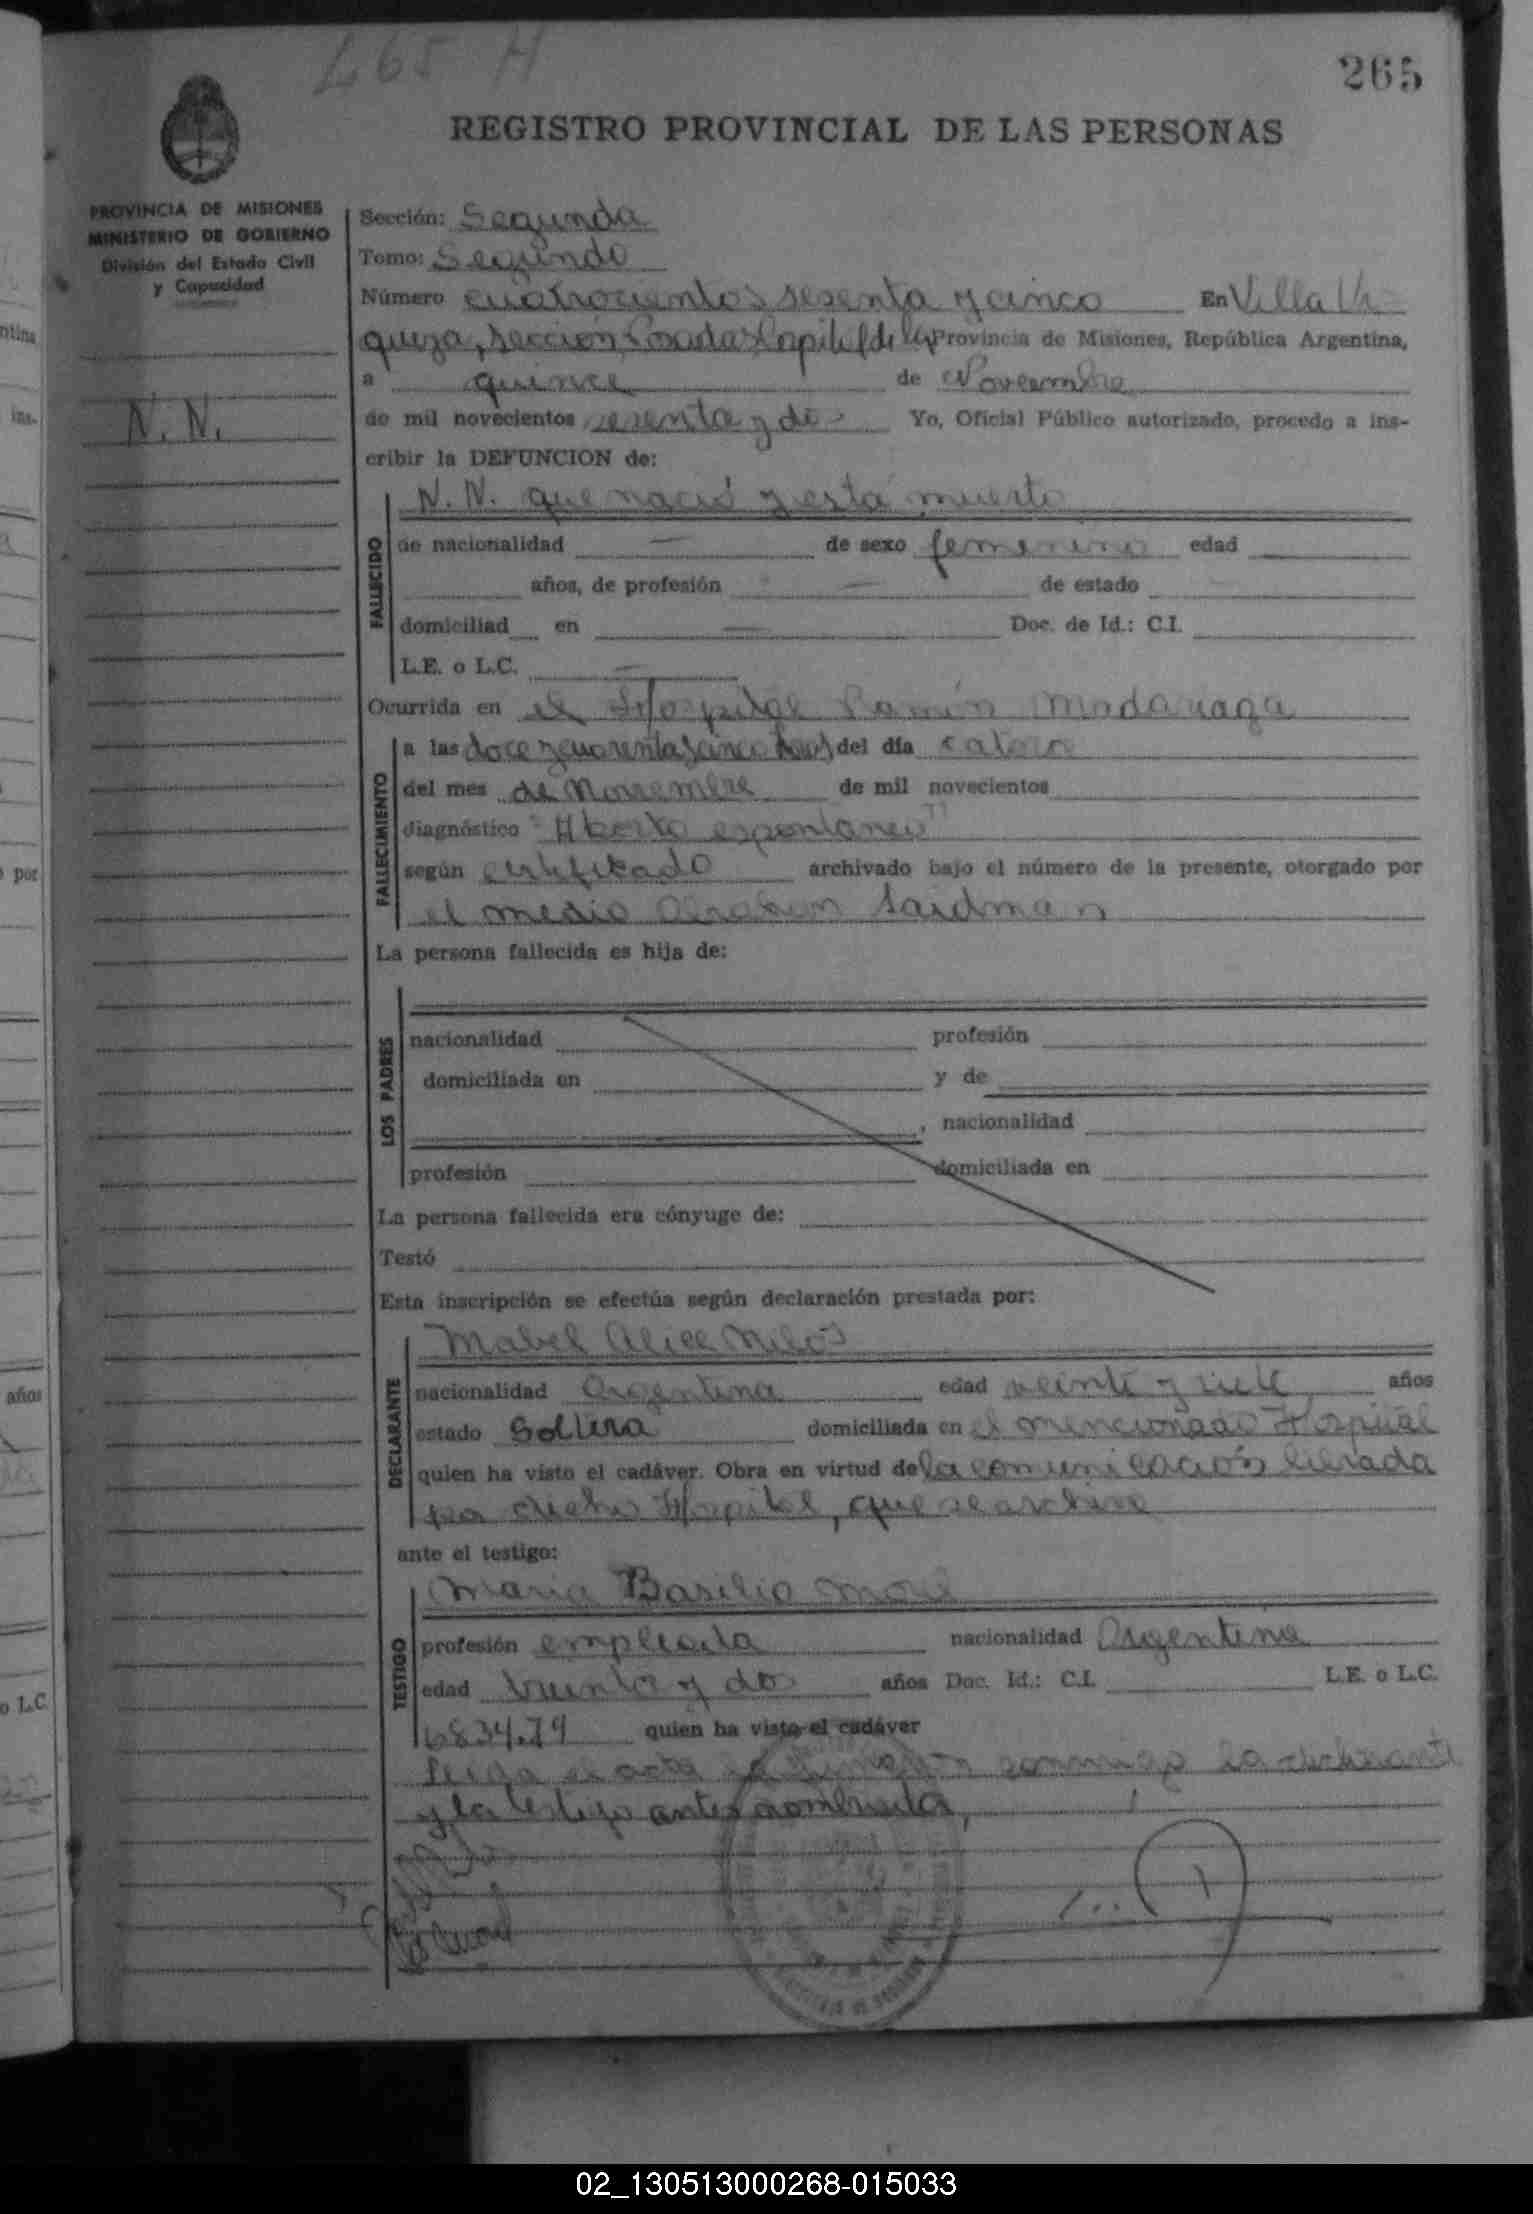 465 H
265
REGISTRO PROVINCIAL DE LAS PERSONAS
PROVINCIA DE MISIONES
MINISTERIO DE GOBIERNO
División del Estado Civil
y Capacidad
N. N.
Sección: Segunda
Tomo: Segundo
Número cuatrocientos sesenta y cinco En Villa Ur
quiza, sección Posadas Capital de la Provincia de Misiones, República Argentina,
a quince de Noviembre
de mil novecientos sesenta y dos Yo, Oficial Público autorizado, procedo a ins-
cribir la DEFUNCION de:
FALLECIDO
N. N. que nació y está muerto
de nacionalidad — de sexo femenino edad
años, de profesión — de estado
domiciliad en — Doc. de Id.: C.I.
L.E. o L.C. —
Ocurrida en el Hospital Ramón Madariaga
FALLECIMIENTO
a las doce y cuarenta y cinco horas del día catorce
del mes de Noviembre de mil novecientos
diagnóstico "Aborto espontaneo"
según certificado archivado bajo el número de la presente, otorgado por
el medio Abraham Saidman
La persona fallecida es hija de:
LOS PADRES
nacionalidad profesión
domiciliada en y de
, nacionalidad
profesión domiciliada en
La persona fallecida era cónyuge de:
Testó
Esta inscripción se efectúa según declaración prestada por:
DECLARANTE
Mabel Alice
nacionalidad Argentina edad veinte y siete años
estado Soltera domiciliada en el mencionado Hospital
quien ha visto el cadáver. Obra en virtud de la comunicación librada
por dicho Hospital, que se archiva
ante el testigo:
TESTIGO
Maria Basilia
profesión empleada nacionalidad Argentina
edad treinta y dos años Doc. Id.: C.I. L.E. o L.C.
683479 quien ha visto el cadáver
Leida el acta la firman conmigo la declarante
y la testigo antes nombrada,
ntina
ins-
por
años
o L.C.
02_130513000268-015033